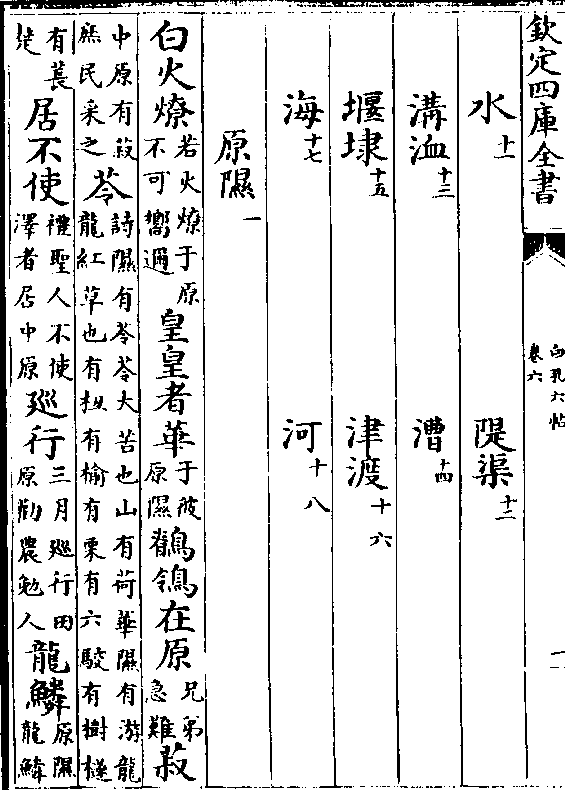 欽定四庫全書
白孔六帖
卷六
一
水十一
隄渠十二
溝洫十三
漕十四
堰埭十五
津渡十六
海十七
河十八
原隰一
白火燎若火燎于原不可嚮邇皇皇者華于彼原隰鶺鴒在原兄弟急難菽
中原有菽庶民采之苓詩隰有苓苓大苦也山有荷華隰有游龍龍紅草也有杻有榆有栗有六駮有樹檖
有萇楚居不使禮聖人不使澤者居中原廵行三月廵行田原勸農勉人龍鱗原隰龍鱗